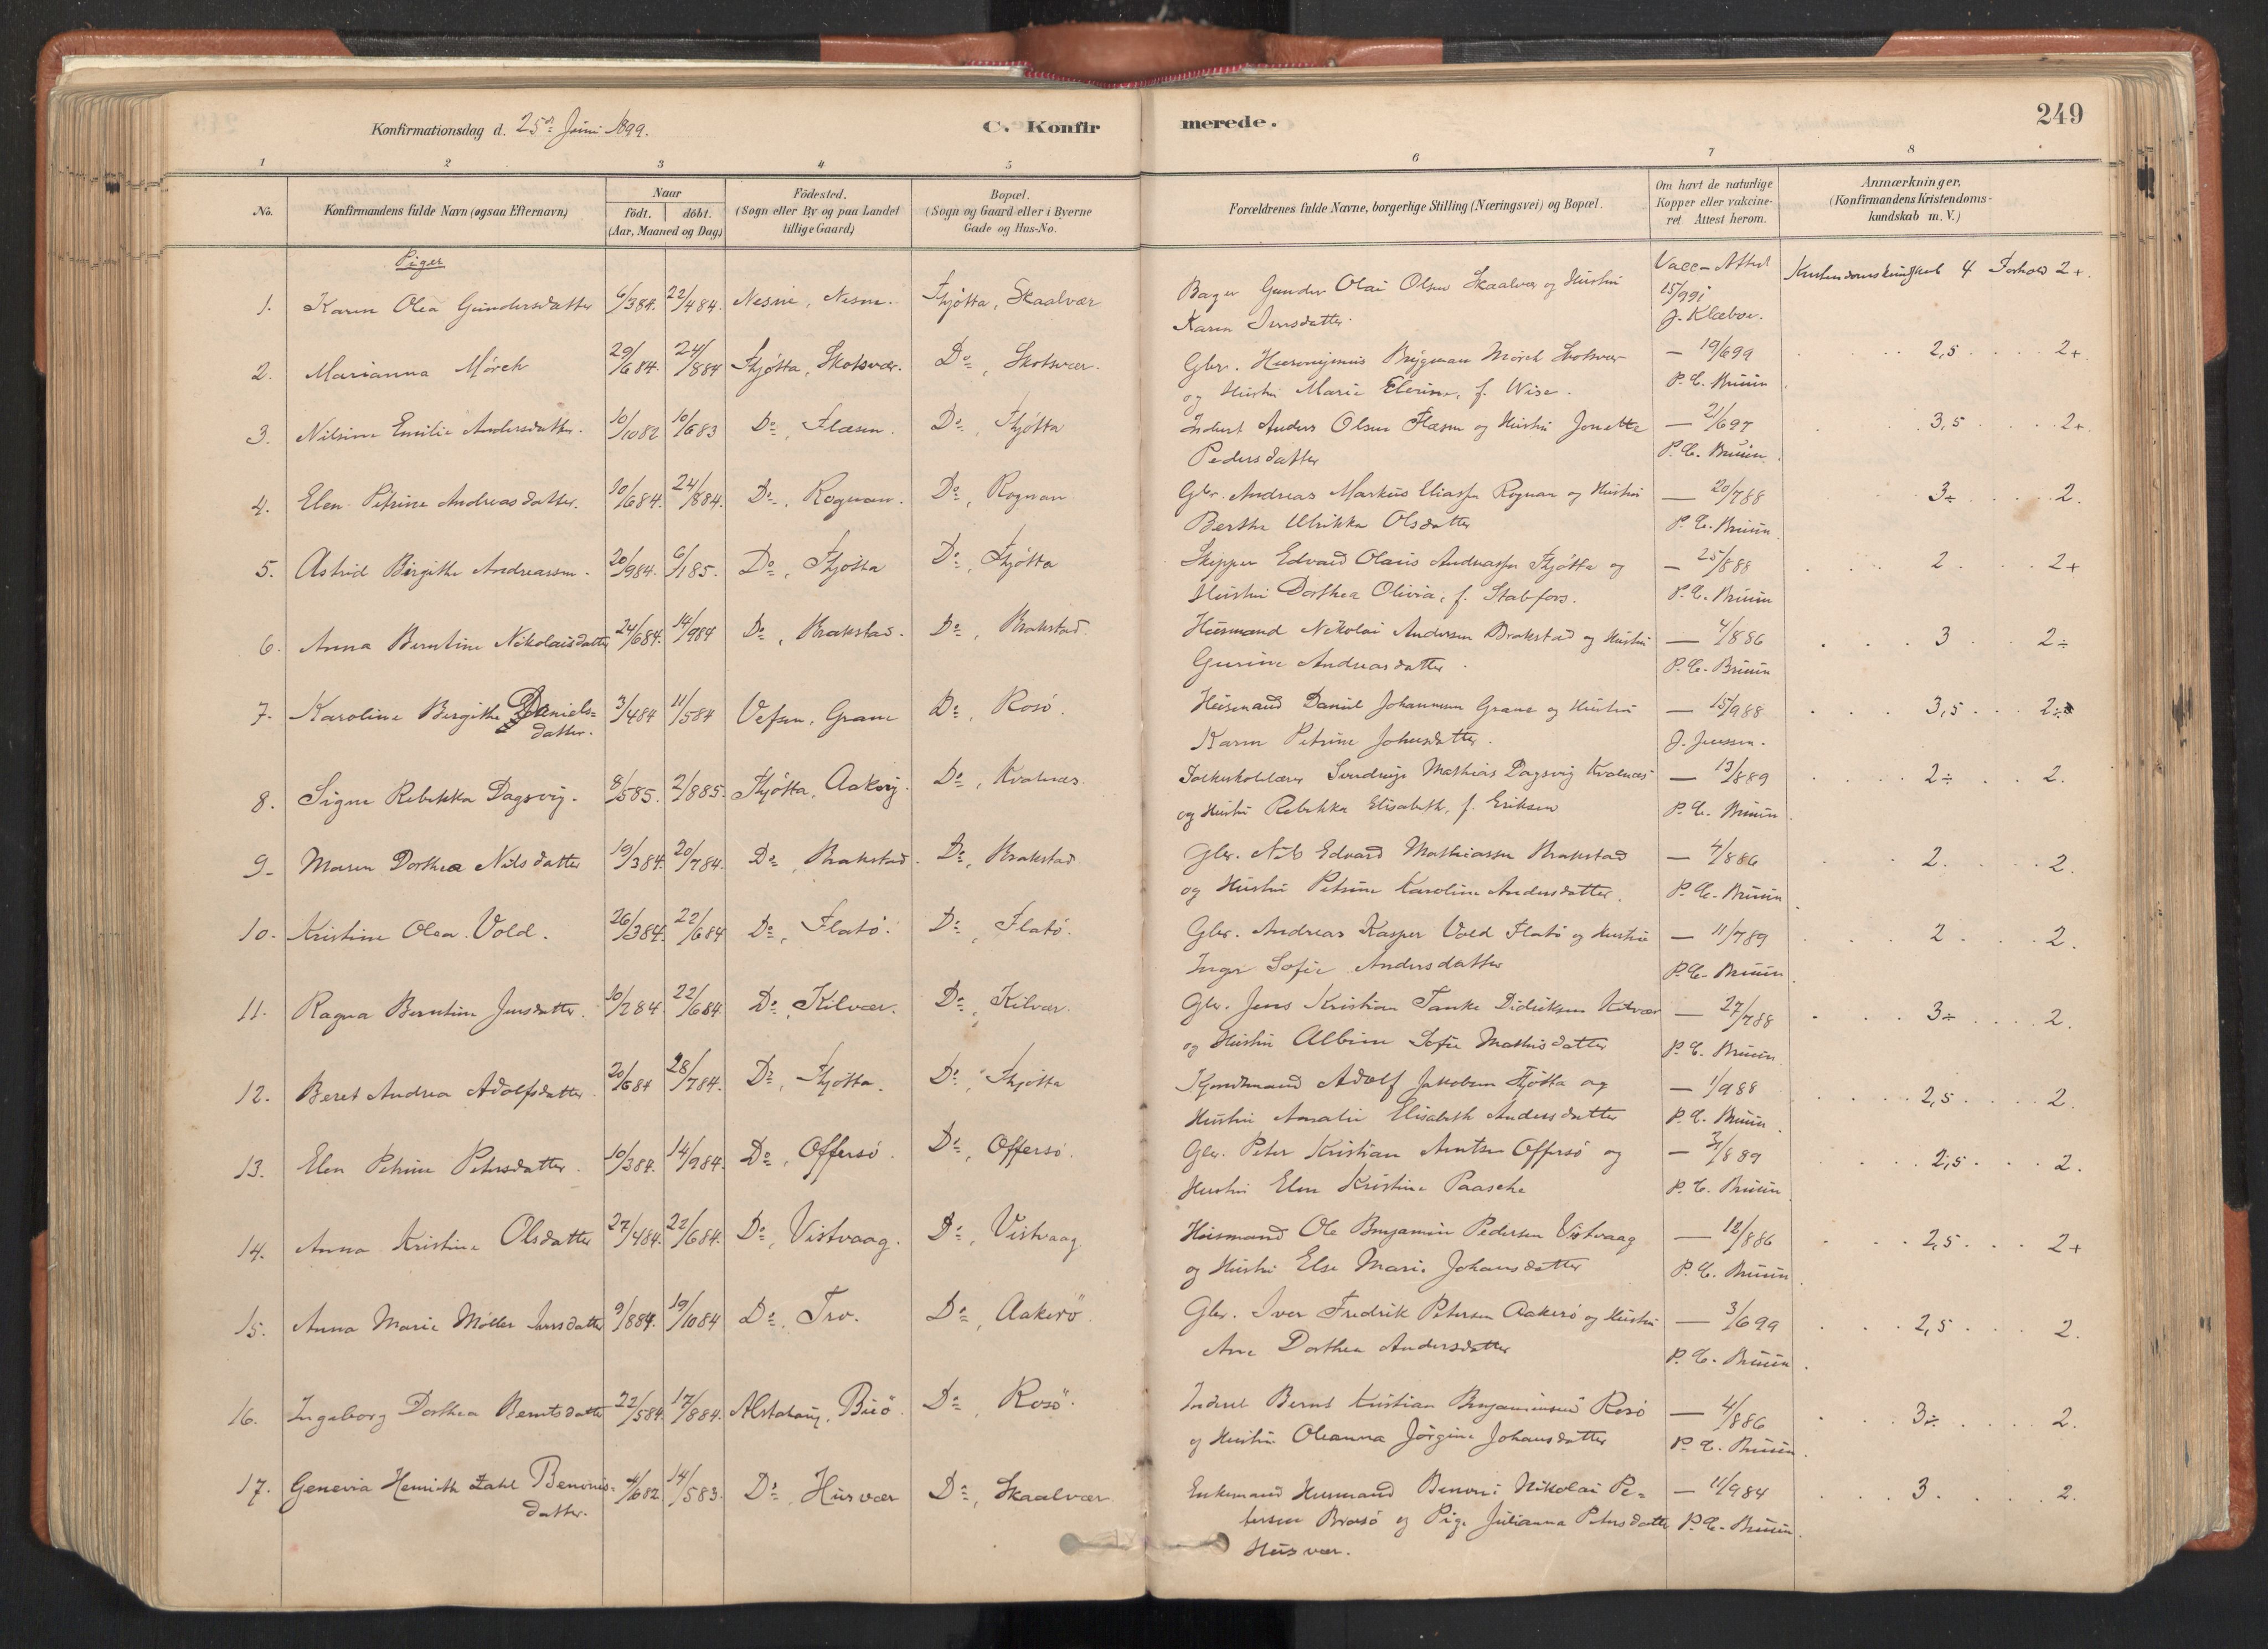 Konfirmationsdag d. 25de Juni 1899.
C. Konfirmerede.
249
1 2 3 4 5 6 7 8
No.
Konfirmandens fulde Navn (ogsaa Efternavn)
Naar
födt. döbt.
(Aar, Maaned og Dag)
Födested.
(Sogn eller By og paa Landet
tillige Gaard)
Bopæl.
(Sogn og Gaard eller i Byerne
Gade og Hus-No.
Forældrenes fulde Navne, borgerlige Stilling (Næringsvei) og Bopæl.
Om havt de naturlige
Kopper eller vakcine-
ret Attest herom.
Anmærkninger.
(Konfirmandens Kristendoms-
kundskab m. V.)
Piger
1. Karen Olea Gundersdatter 6/384. 22/484. Nesne, Nesne. Thjøtta, Skaalvær
Bager Gunder Olai Olsen Skaalvær og Hustru Vacc-Attest Kristendomskundskab 4 Forhold 2+.
Karen Iversdatter. 15/991
J. Klæboe.
2. Marianna Mörch 29/684. 24/884 Thjøtta, Skotsvær. Do, Skotsvær.
Gbr. Hieronymus Brygman Mörch Skotsvær — 19/699 2,5 2+.
og Hustru Marie Elerine, f. Wise. P. C. Bruun
3. Nilsine Emilie Andersdatter. 10/1082 10/683 Do, Flæsen. Do, Thjøtta
Inderst Anders Olsen Flæsen og Hustru Jonette — 2/697 3,5 2+.
Pedersdatter P. C. Bruun
4. Elen Petrine Andreasdatter. 10/684. 24/884. Do, Rognan. Do, Rognan
Gbr. Andreas Markus Eliassen Rognan og Hustru — 20/788 3÷ 2.
Berthe Ulrikka Olsdatter P. C. Bruun.
5. Astrid Birgithe Andreassen. 20/984. 6/185. Do, Thjøtta Do, Thjøtta
Skipper Edvard Olaus Andreassen Thjøtta og — 25/888 2 2+
Hustru Dorthea Olivia, f. Stabfors. P. C. Bruun
6. Anna Berntine Nikolaisdatter 24/684. 14/984 Do, Brakstad. Do, Brakstad.
Husmand Nikolai Andersen Brakstad og Hustru — 4/886 3 2÷
Gurine Andreasdatter. P. C. Bruun
7. Karoline Birgithe Daniels= 3/484 11/584 Vefsen, Grane Do, Rosö.
datter.
Husmand Daniel Johannsen Grane og Hustru — 15/988 3,5 2÷
Karen Petrine Johnsdatter. J. Jenssen.
8. Signe Rebekka Dagsvig. 8/585. 2/885. Thjøtta, Aakvig. Do, Kvalnæs.
Folkeskolelærer Mathias Dagsvig Kvalnæs — 13/889 2÷ 2.
og Hustru Rebekka Elisabeth, f. Eriksen P. C. Bruun.
9. Maren Dorthea Nilsdatter 19/384. 20/784. Do, Brakstad. Do, Brakstad
Gbr. Nils Edvard Mathiassen Brakstad — 4/886 2. 2.
og Hustru Petrine Karoline Andersdatter. P. C. Bruun.
10. Kristine Olea Vold. 26/384. 22/684 Do, Flatö. Do, Flatö.
Gbr. Andreas Kasper Vold Flatö og Hustru — 11/789 2 2.
Inger Sofie Andersdatter P. C. Bruun.
11. Ragna Berntine Jensdatter. 10/284 22/684. Do, Kilvær. Do, Kilvær.
Gbr. Jens Kristian Tanke Didriksen Kilvær — 27/788 3÷ 2.
og Hustru Albine Sofie Mathisdatter P. C. Bruun.
12. Beret Andrea Adolfsdatter. 20/684 28/784. Do, Thjøtta. Do, Thjøtta
Adolf Jakobsen Thjøtta og — 1/988 2,5 2.
Hustru Amalie Elisabeth Andersdatter P. C. Bruun.
13. Elen Petrine Petersdatter. 10/384. 14/984. Do, Offersö. Do, Offersö.
Gbr. Peter Kristian Arntsen Offersö og — 3/889 2,5 2.
Hustru Elen Kristine Paasche P. C. Bruun
14. Anna Kristine Olsdatter 27/484. 22/684. Do, Vistvaag. Do, Vistvaag
Husmand Ole Benjamin Pedersen Vistvaag — 12/886 2,5 2+
og Hustru Else Marie Johansdatter P. C. Bruun.
15. Anna Marie Möller Iversdatter 9/884. 19/1084 Do, Tro. Do, Aakerö
Gbr. Iver Fredrik Petersen Aakerö og Hustru — 3/699 2,5 2.
Ane Dorthea Andersdatter P. C. Bruun.
16. Ingeborg Dorthea Berntsdatter 22/584. 17/884. Alstahaug, Buö. Do, Rosö.
Inderst Bernt Kristian Benjaminsen Rosö — 4/886 3÷ 2.
og Hustru Oleanna Jörgine Johansdatter P. C. Bruun.
17. Genevia Henrith Zahl Benonis= 4/682 14/583. Do, Husvær Do, Skaalvær
datter.
Enkemand Husmand Benoni Nikolai Pe= — 11/984 3. 2.
tersen Brasö og Pige Julianna Petersdatter P. C. Bruun.
Husvær.